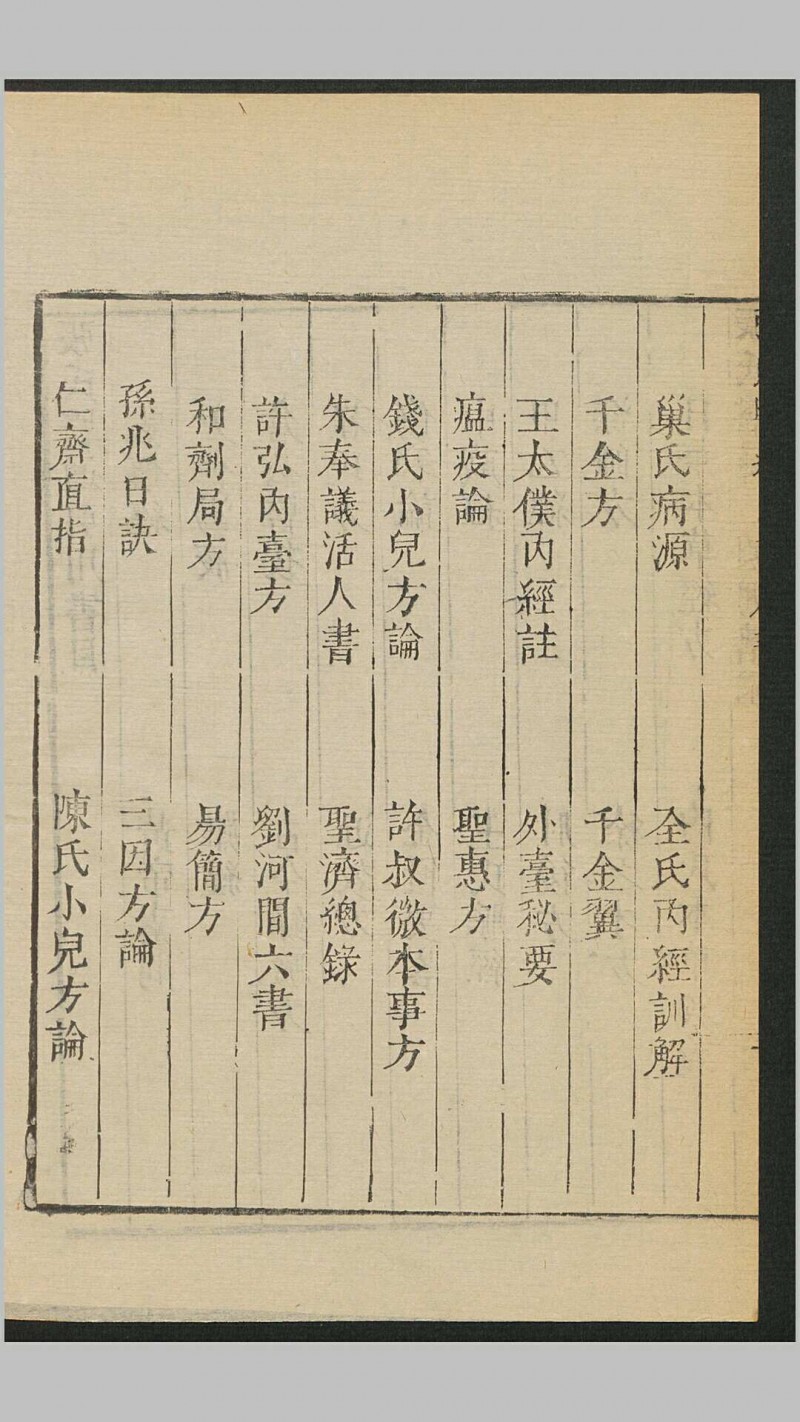 巢氏病源　全氏內經訓解
千金方　千金翼
王太僕內經註　外臺秘要
瘟疫論　聖惠方
錢氏小兒方論　許叔微本事方
朱奉議活人書　聖濟總錄
許弘內臺方　劉河間六書
和劑局方　易簡方
孫兆日訣　三因方論
仁齋直指　陳氏小兒方論